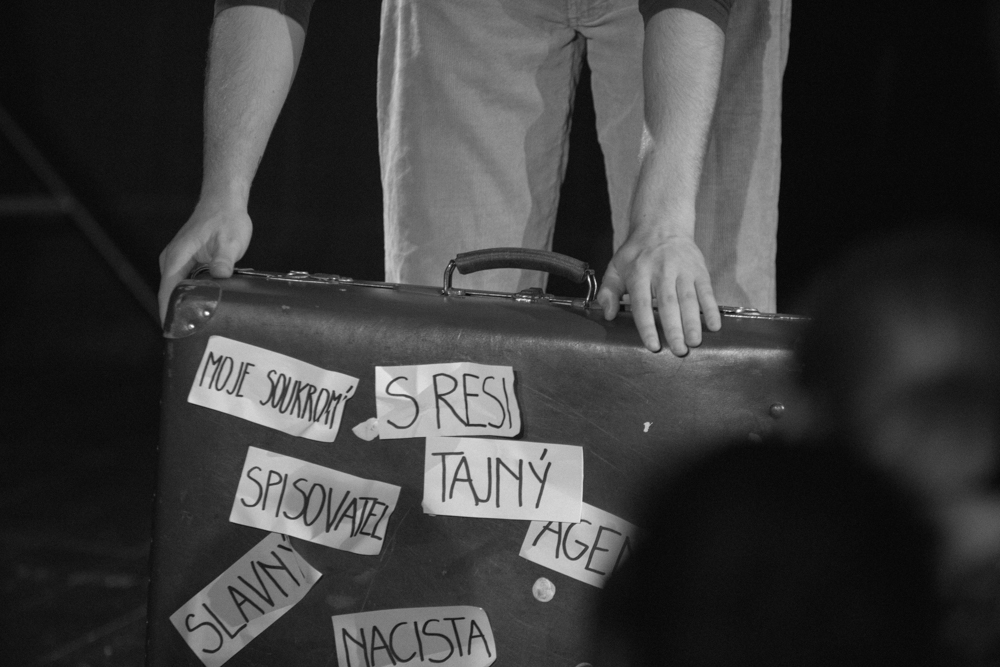 MOJE SOUKROMÍ
S RESI
TAJNÝ
SPISOVATEL
AGEN
SLAVNÝ
NACISTA